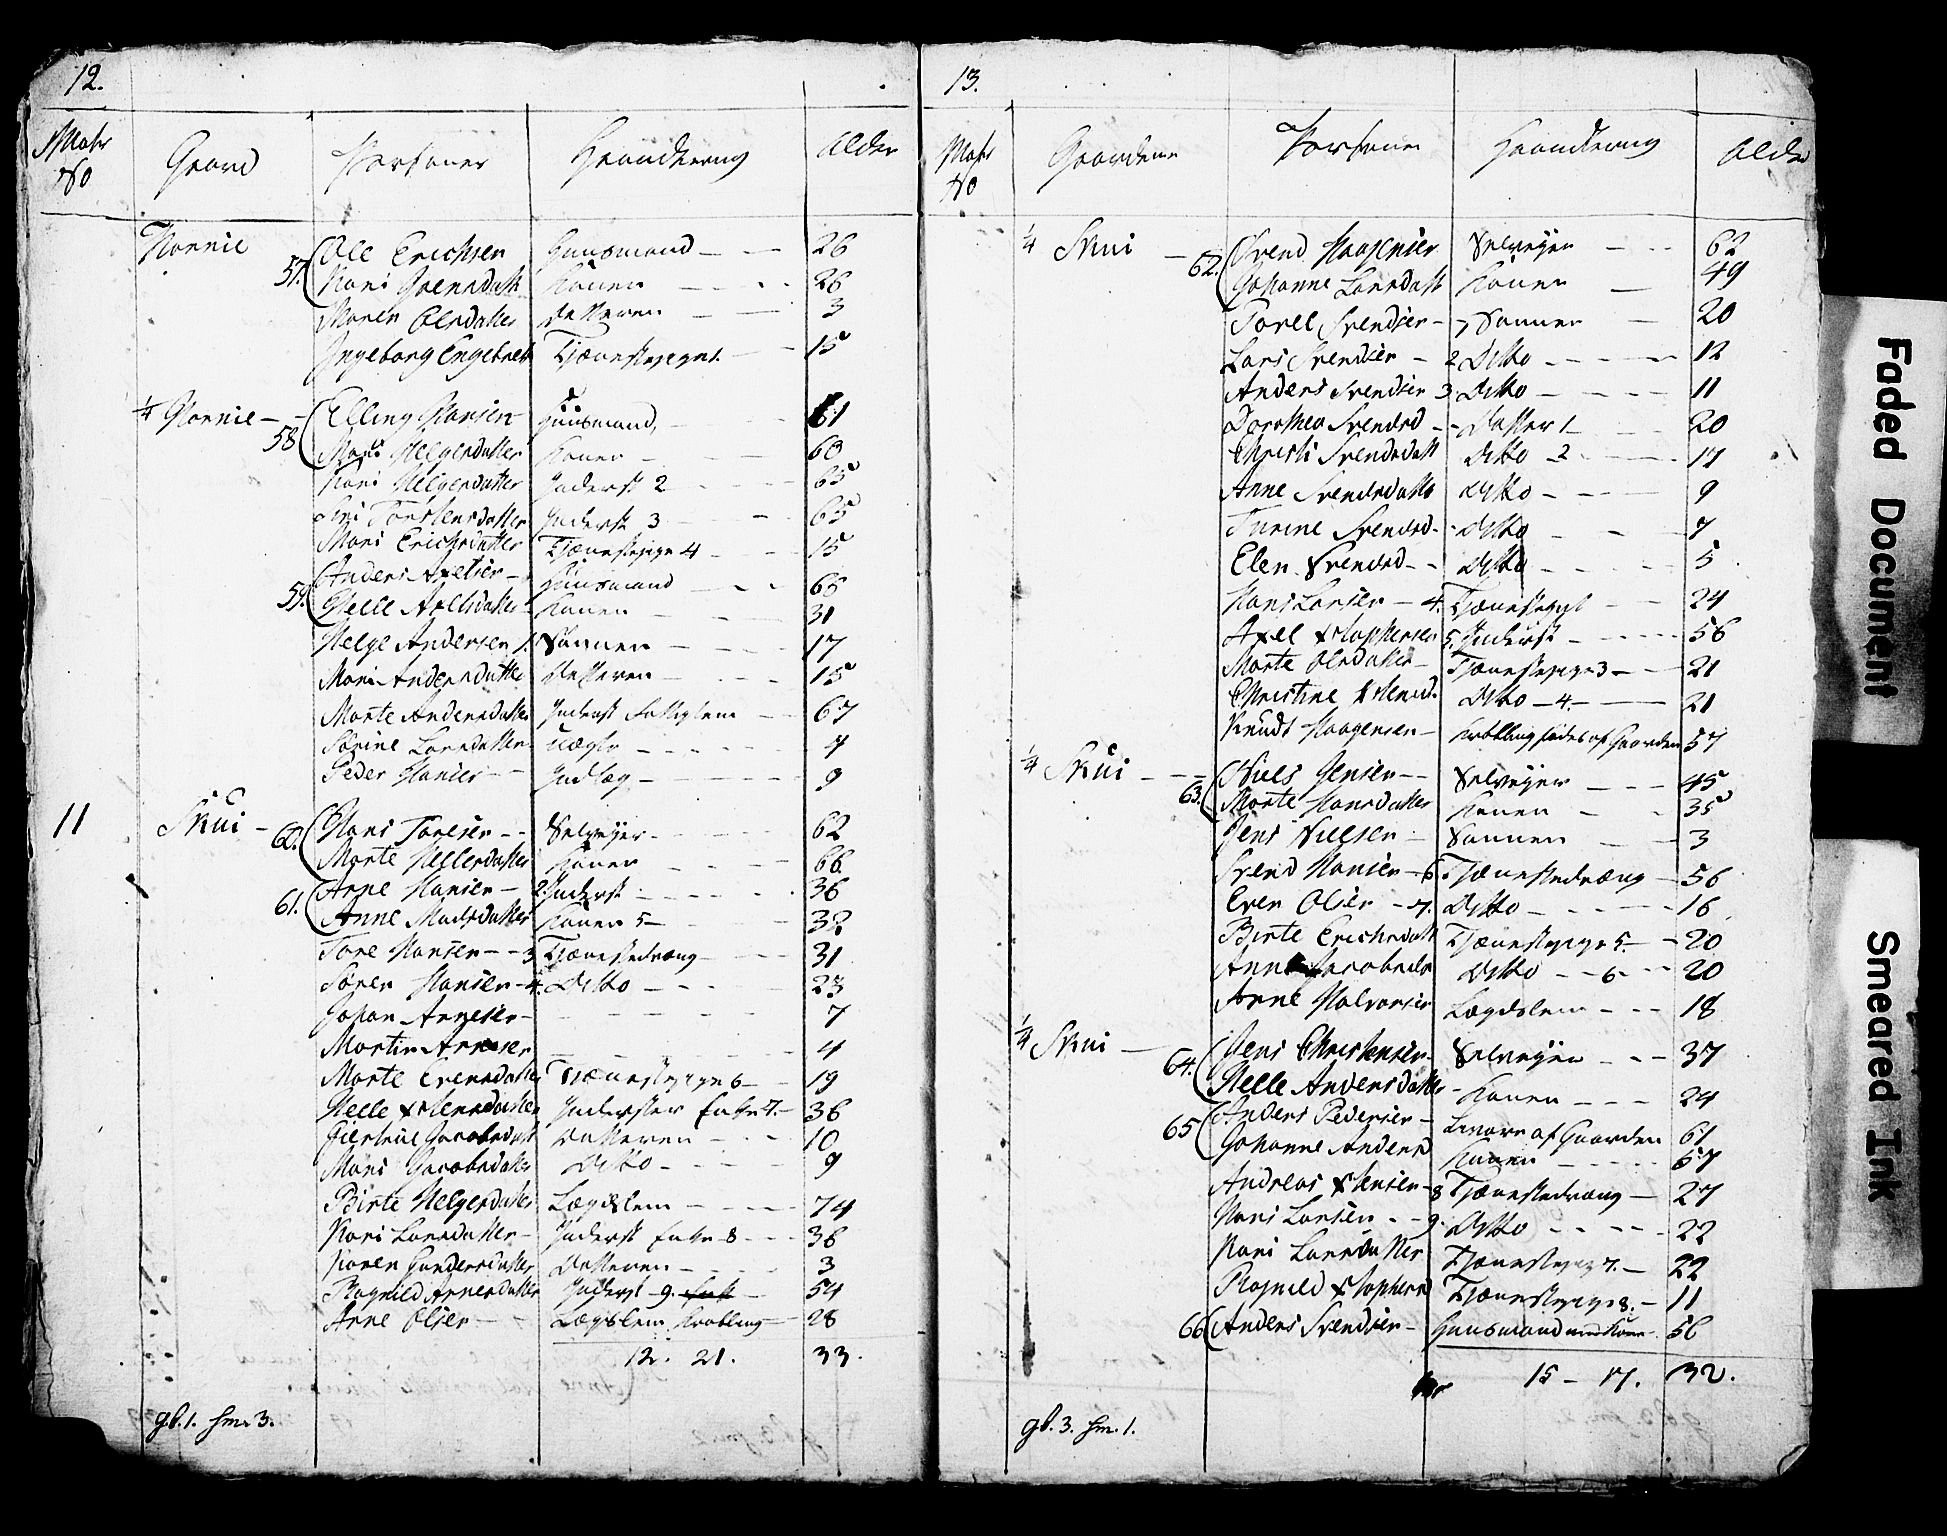 12.
Matr No Gaard Personer Haandtering Alder
Hornie 57. Ole Erichsen Huusmand 26
Kari Iversdatt Konen 26
Maren Olesdatter Datteren 3
Ingeborg Engebret Tjænestepige 1. 15
1/4 Hornie 58 Elling Hansen Huusmand, 61
Mari Helgesdatter Konen 60
Kari Helgesdatter Inderst 2 65
Siri Torstensdatter Inderst 3 65
Mari Erichsdatter Tjænestepige 4 15
59. Anders Axelsen Huusmand 65
Pelle Axelsdatter Konen 31
Helge Andersen 1. Sønnen 17
Mari Andersdatter Datteren 15
Marte Andersdatter Inderst Fattiglem 67
Sørine Larsdatter 4
Peder Hansen Indlæg 9
11 Skui 60. Hans Toresen Selveyer 62
Marte Hellesdatter Konen 66
61. Arne Hansen 2. Inderst 36
Anne Madsdatter Konen 5 32
Tore Hansen 3 Tjænestedræng 31
Søren Hansen 4. Ditto 23
Johan Arnesen 7
Martin Arnesen 4
Marte Evensdatter Tjænestepige 6 19
Helle Stensdatter Inderster Enke 7. 36
Giertrue Jacobsdatt Datteren 10
Mari Jacobsdatter Ditto 9
Birte Helgesdatter Lægdslem 74
Kari Larsdatter Inderst Enke 8 36
Karen Gundersdatter Datteren 3
Ragnild Arnesdatter Inderst 9. 54
Arne Olsen Lægslem Krøbling 28
12. 21. 33.
gb. 1. hm. 3.
13.
Matr No Gaardene Personer Haandtering Alder
1/4 Skui 62. Svend Haagensen Selveyer 62
Johanne Larsdatt Konen 49
Torel Svendsen 1 Sønnen 20
Lars Svendsen 2 Ditto 12
Anders Svendsen 3 Ditto 11
Dorothea Svendsd Datter 1 20
Christi Svendsdatt Ditto 2 17
Anne Svendsdatter Ditto 9
Turine Svendsd. Ditto 7
Elen Svendsd Ditto 5
Hans Larsen 4. Tjænestekarl 24
Axel Stophersen 5. Inderst 56
Marte Olesdatter Tjænestepige 3 21
Christine Stensd. Ditto 4. 21
Knudt Haagensen Krøbling fødes af Gaarden 57
1/4 Skui 63. Niels Jensen Selveyer 45
Marte Hansdatter Konen 35
Jens Nielsen Sønnen 3
Svend Hansen 6 Tjænestedræng 56
Even Olsen 7. Ditto 16
Birte Erichsdatt Tjænestepige 5. 20
Anne Jacobsdr Ditto 6. 20
Arne Halvorsen Lægdslem 18
1/4 Skui 64. Jens Christensen Selveyer 37
Helle Andersdatter Konen 24
65 Anders Pedersen Levore af Gaarden 61
Johanne Andersd Konen 57
Andreas Stensen 8 Tjænestedræng 27
Hans Larsen 9. Ditto 22
Kari Larsdatter Tjænestepige 7. 22
Ragnild Stophersd Tjænestepige 8. 11
66 Anders Svendsen Huusmand med Kone 56
15 - 17. 32.
gb. 3. hm. 1.
Faded Document
Smeared Ink